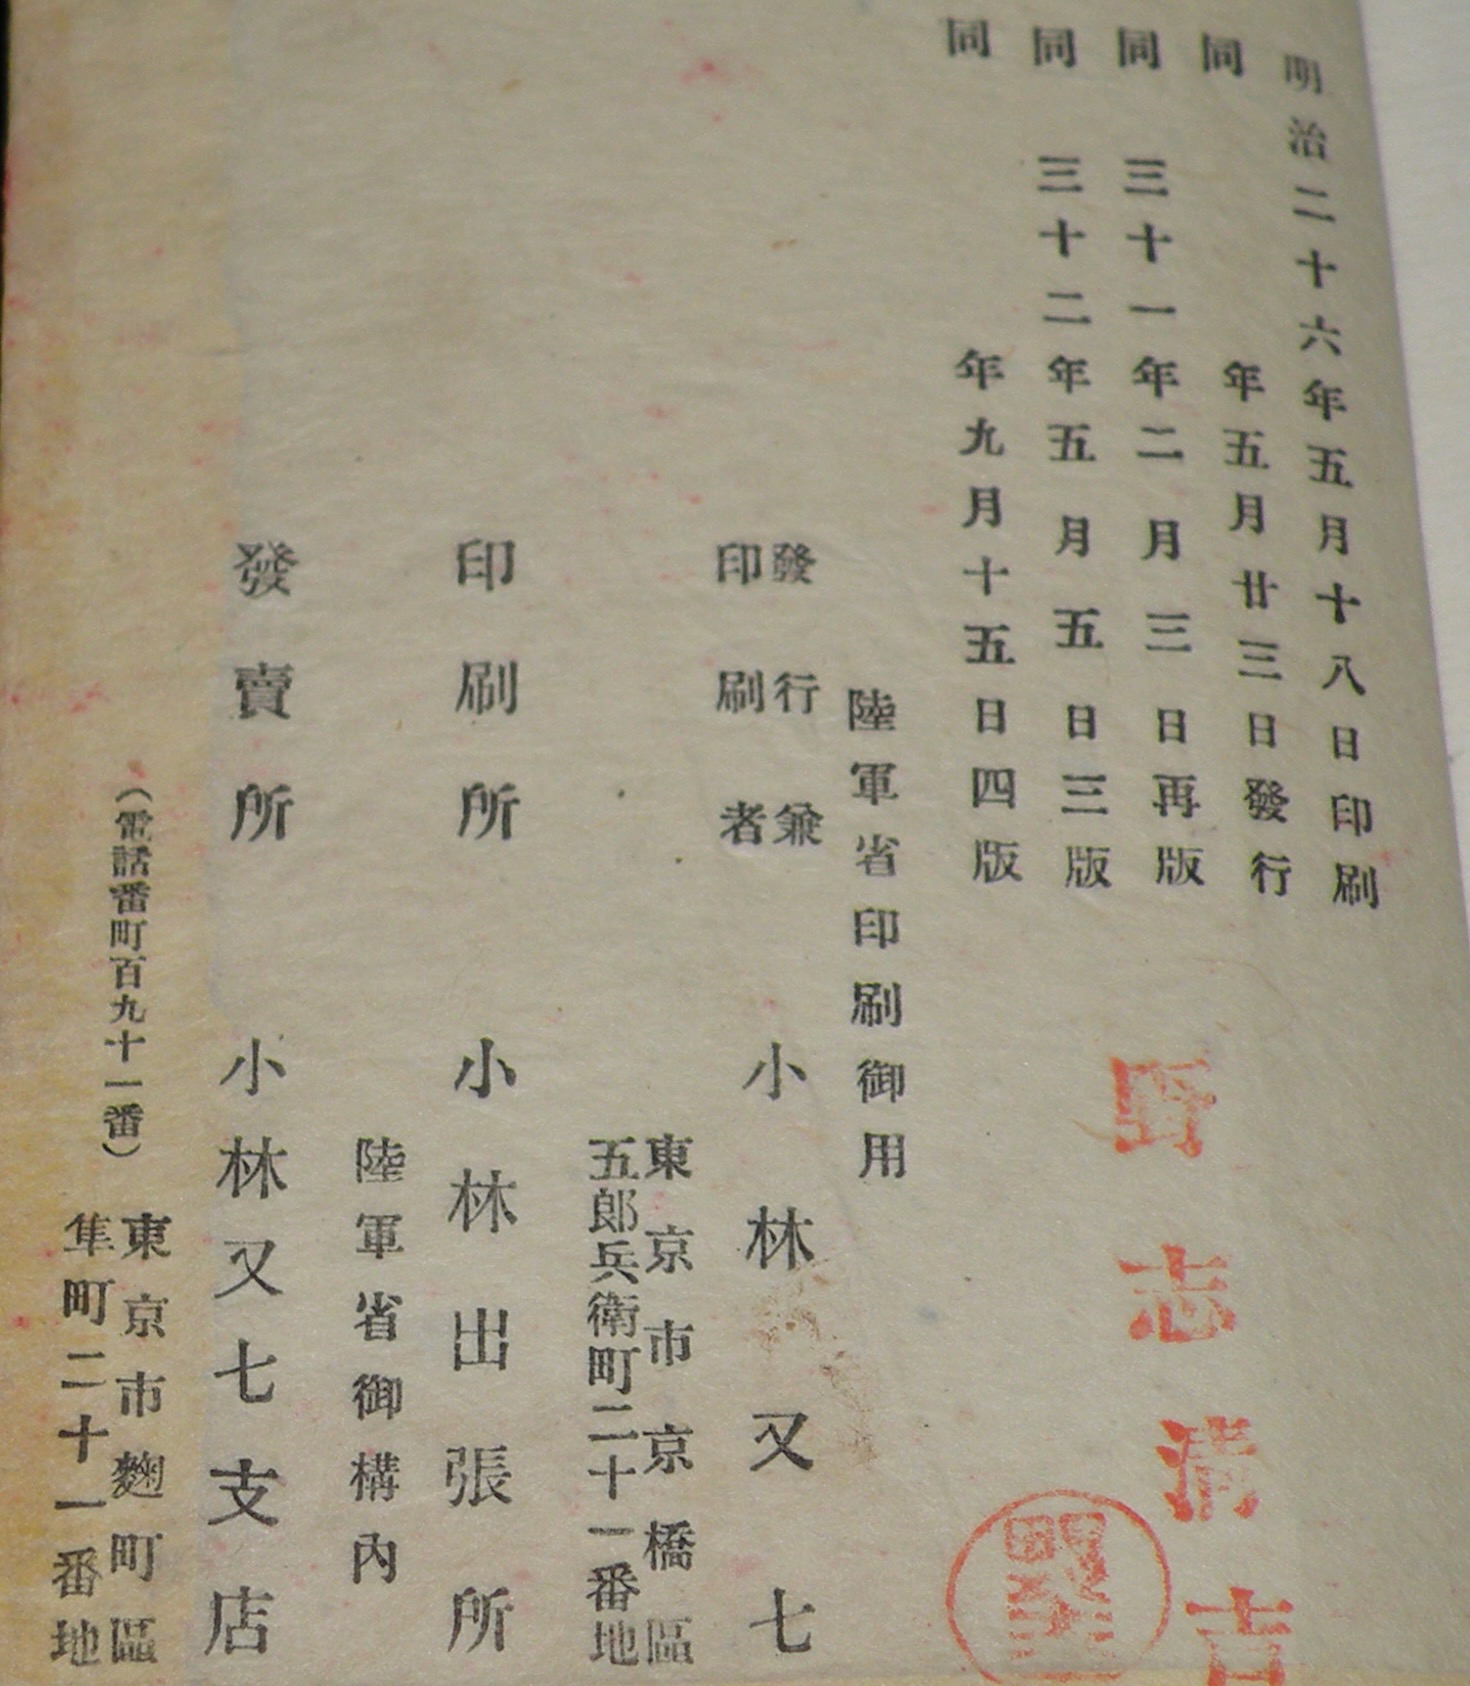 明治二十六年五月十八日印刷
同年五月廿三日發行
同三十一年二月三日再版
同三十二年五月五日三版
同年九月十五日四版
野志清吉
陸軍省印刷御用
發行兼
印刷者
小林又七
東京市京橋區
五郎兵衛町二十一番地
印刷所
小林出張所
陸軍省御構內
發賣所
小林又七支店
（電話番町百九十一番）
東京市麴町區
隼町二十一番地